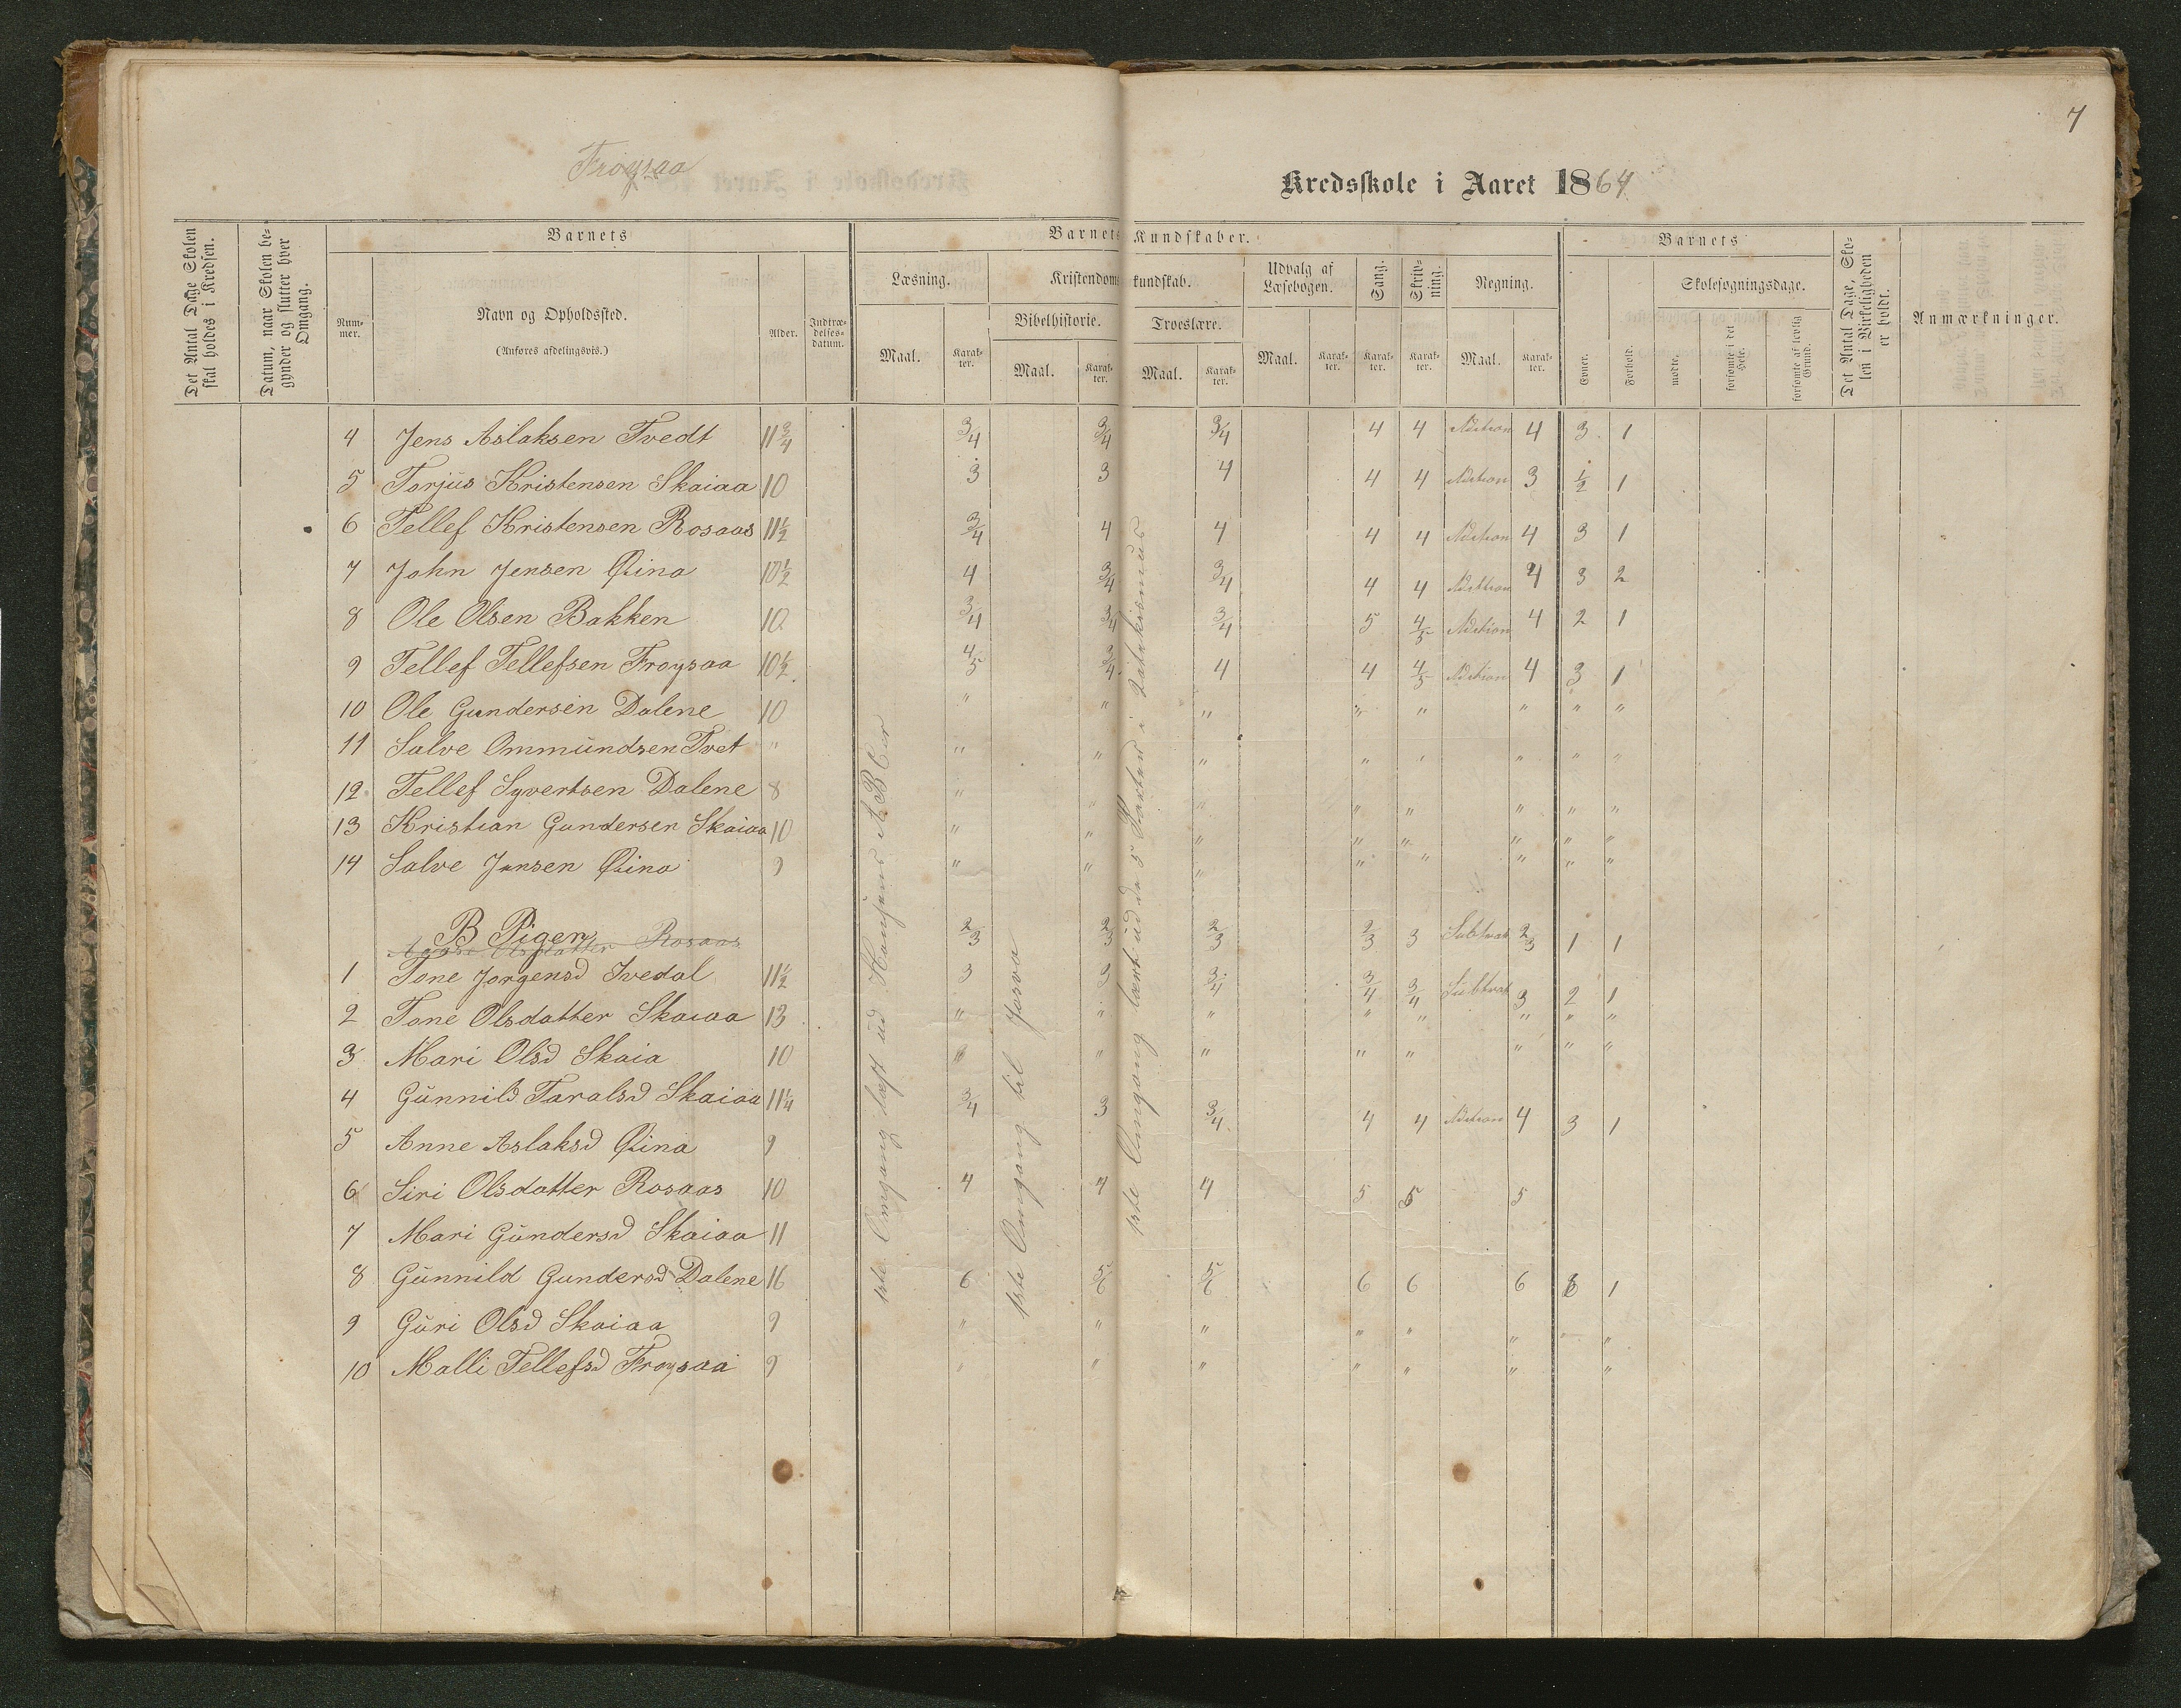 7
Froysaa
Kredsskole i Aaret 1864
Det Antal Dage Skolen skal holdes i Kredsen.
Datum, naar Skolen begynder og slutter hver Omgang.
Barnets
Barnets Kundskaber.
Barnets
Det Antal Dage, Skolen i Virkeligheden er holdt.
Anmærkninger.
Nummer.
Navn og Opholdssted.
(Anføres afdelingsvis.)
Alder.
Indtrædelsesdatum.
Læsning.
Kristendomskundskab.
Udvalg af Læsebogen.
Sang.
Skrivning.
Regning.
Evner.
Forhold.
Skolesøgningsdage.
Bibelhistorie.
Troeslære.
mødte.
forsømte i det Hele.
forsømte af lovlig Grund.
Maal. Karakter. Maal. Karakter. Maal. Karakter. Maal. Karakter. Karakter. Karakter. Maal. Karakter.
4 Jens Aslaksen Tvedt 11 3/4 3/4 3/4 3/4 4 4 Adition 4 3 1
5 Torjus Kristensen Skaiaa 10 3 3 4 4 4 Adition 3 1/2 1
6 Tellef Kristensen Rosaas 11 1/2 3/4 4 4 4 4 Adition 4 3 1
7 John Jensen Qvina 10 1/2 4 3/4 3/4 4 4 Adition 4 3 2
8 Ole Olsen Bakken 10 3/4 3/4 3/4 5 4/5 Adition 4 2 1
9 Tellef Tellefsen Froysaa 10 1/2 4/5 3/4 4 4 4/5 Adition 4 3 1
10 Ole Gundersen Dalene 10 " " " " " " " "
11 Salve Ommundsen Tvet " " " " " " " " "
12 Tellef Syvertsen Dalene 8 " " " " " " " "
13 Kristian Gundersen Skaiaa 10 " " " " " " " "
14 Salve Jensen Qvina 9 " " " " " " " "
B Piger
Olsdatter Rosaas 2/3 2/3 2/3 2/3 3 Subtrak 2/3 1 1
1 Tone Jorgensd Ivedal 11 1/2 3 3 3/4 3/4 3/4 Subtrak 3 2 1
2 Tone Olsdatter Skaiaa 13 " " " " " " " "
3 Mari Olsd Skaia 10 " " " " " " " "
4 Gunnild Taralsd Skaiaa 11 1/4 3/4 3 3/4 4 4 Adition 4 3 1
5 Anne Aslaksd Qvina 9
6 Siri Olsdatter Rosaas 10 4 4 4 5 5 5
7 Mari Gundersd Skaiaa 11
8 Gunnild Gundersd Dalene 16 6 5/6 5/6 6 6 6 1
9 Guri Olsd Skaiaa 9 " " " " " " " "
10 Malli Tellefsd Froysaa 9 " " " " " " "
1ste Omgang læst ud Hansens ABCer
1ste Omgang til Josva
1ste Omgang lært ud de 5 Parter i Katekismus